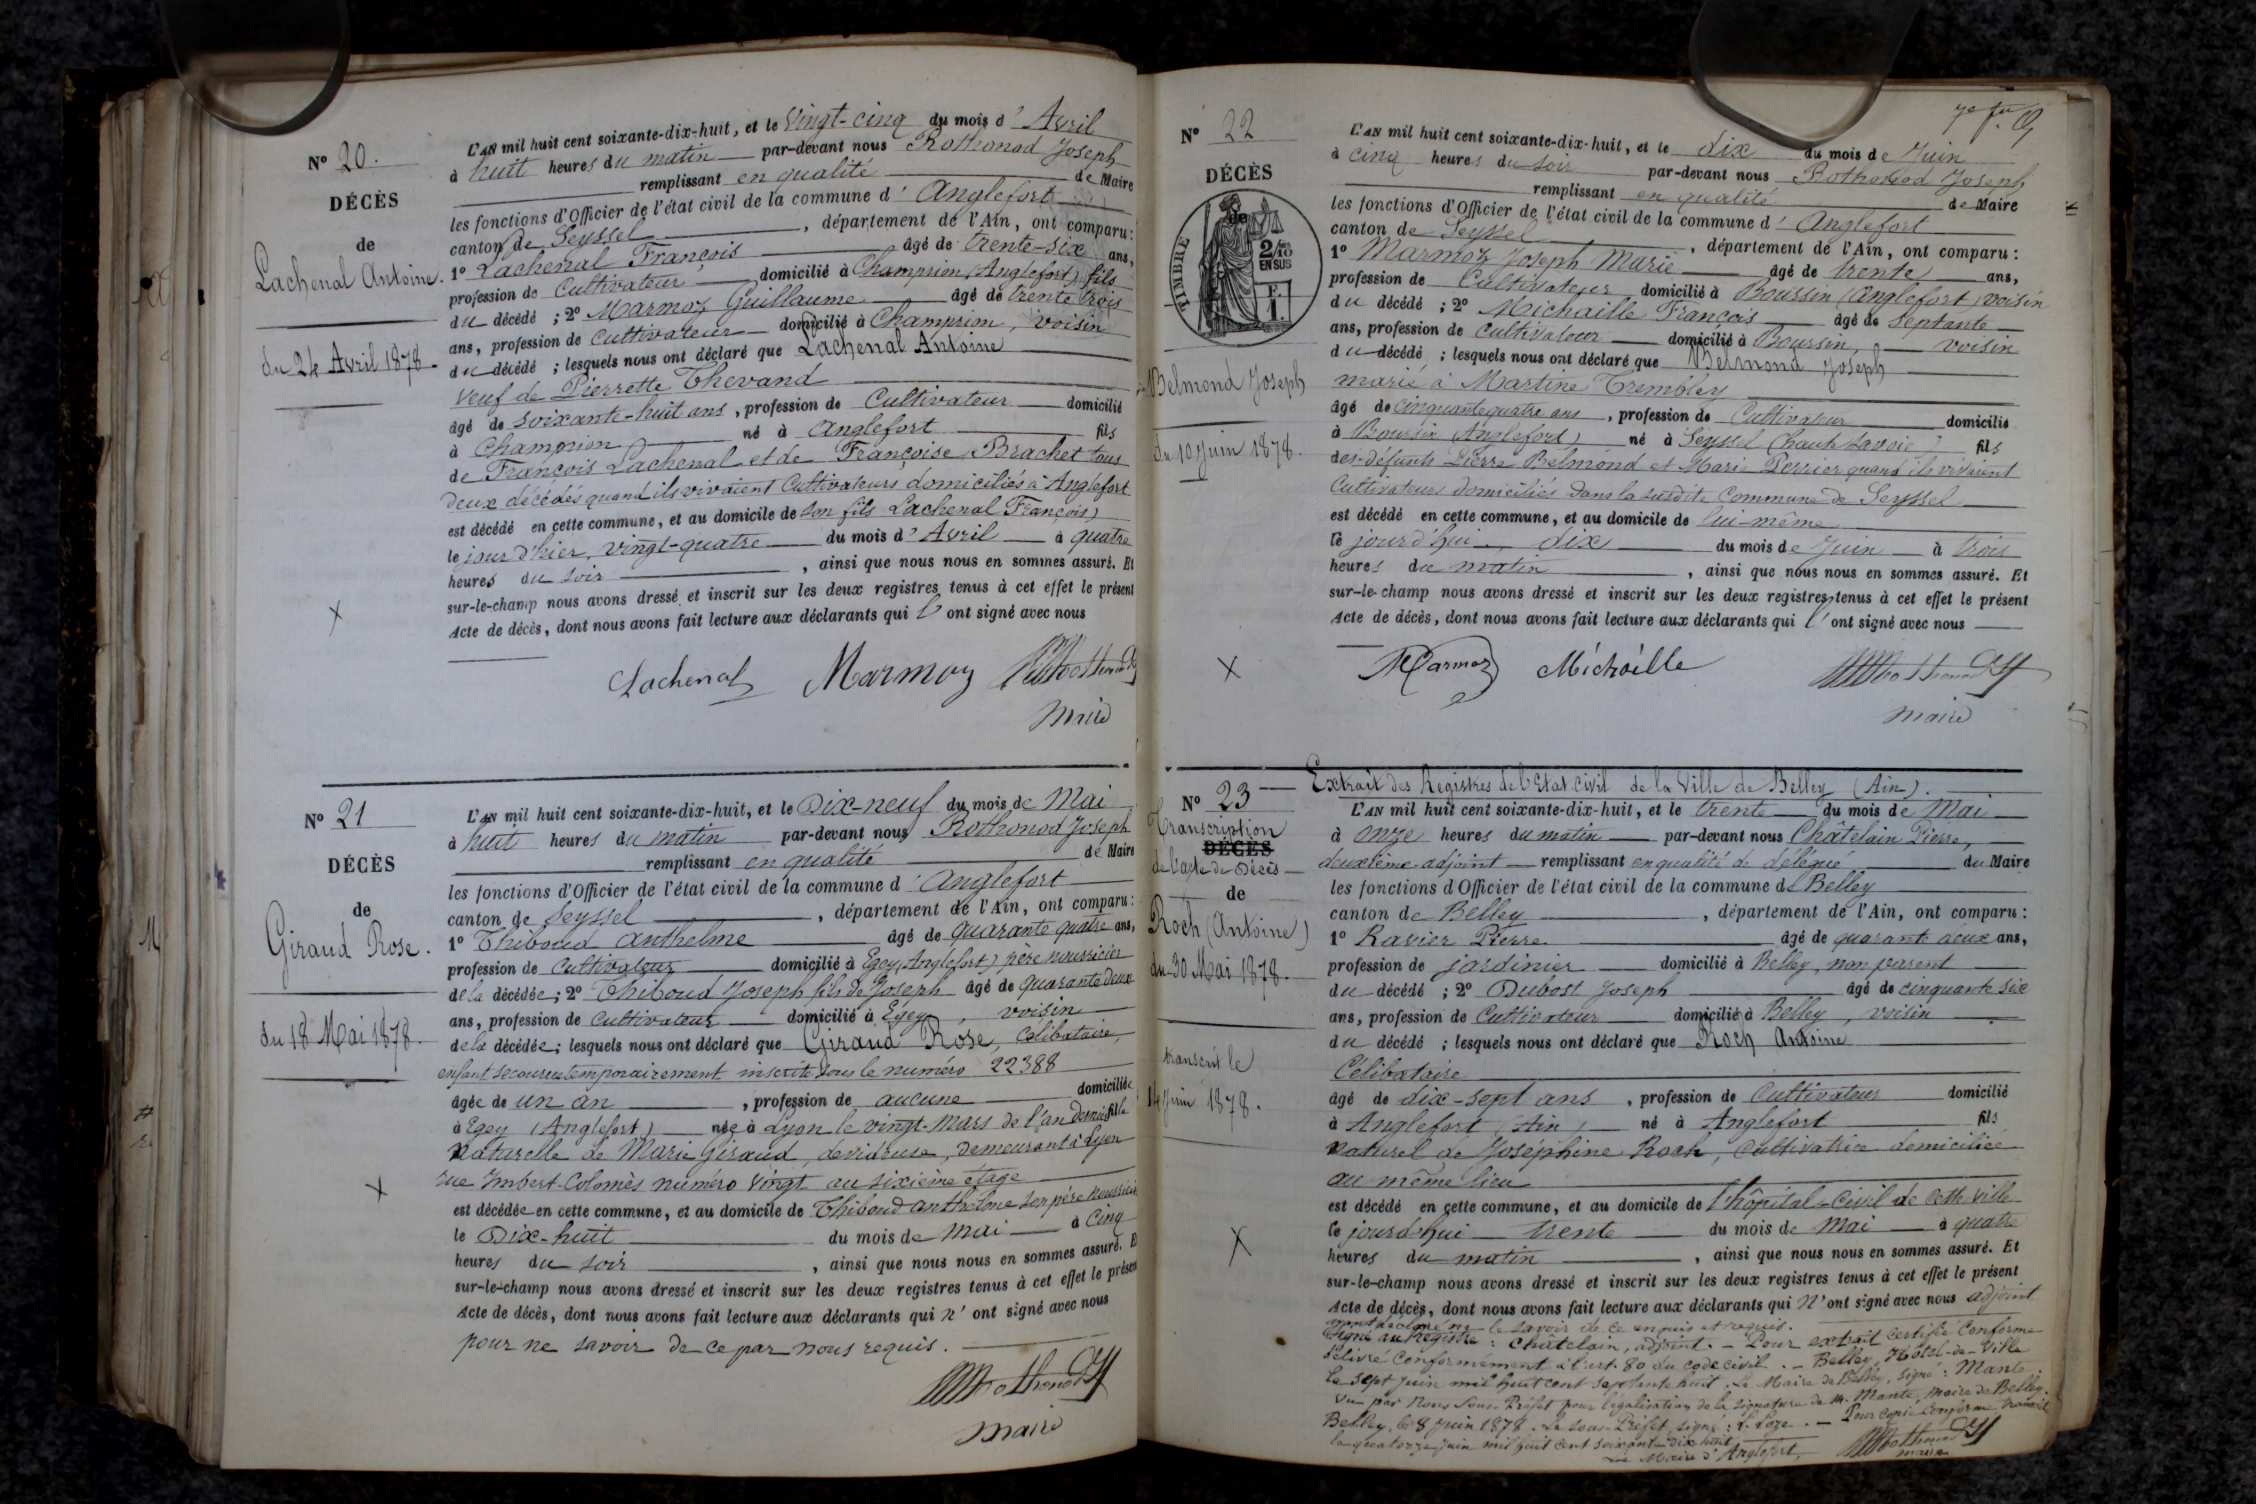 Nº 20.
DÉCÈS
de
Lachenal Antoine.
du 24 Avril 1878
L'AN mil huit cent soixante-dix-huit, et le Vingt-cinq du mois d' Avril
à huit heures du matin par-devant nous Rothonod Joseph
remplissant en qualité de Maire
les fonctions d'Officier de l'état civil de la commune d' Anglefort
canton de Seyssel, département de l'Ain, ont comparu:
1º Lachenal François âgé de trente-six ans,
profession de Cultivateur domicilié à Champrion (Anglefort) fils
du décédé ; 2º Marmoz Guillaume âgé de trente trois
ans, profession de Cultivateur domicilié à Champrion, voisin
du décédé ; lesquels nous ont déclaré que Lachenal Antoine
Veuf de Pierrette Thevand
âgé de soixante-huit ans, profession de Cultivateur domicilié
à Champrion né à Anglefort fils
de François Lachenal et de Françoise Brachet tous
deux décédés quand ils vivaient Cultivateurs domiciliés à Anglefort
est décédé en cette commune, et au domicile de son fils Lachenal François)
le jour d'hier vingt-quatre du mois d' Avril à quatre
heures du soir, ainsi que nous nous en sommes assuré. Et
sur-le-champ nous avons dressé et inscrit sur les deux registres tenus à cet effet le présent
Acte de décès, dont nous avons fait lecture aux déclarants qui l' ont signé avec nous
Lachenal Marmoz Rothonod
maire
Nº 21
DÉCÈS
de
Giraud Rose.
du 18 Mai 1878.
L'AN mil huit cent soixante-dix-huit, et le Dix-neuf du mois de Mai
à huit heures du matin par-devant nous Rothonod Joseph
remplissant en qualité de Maire
les fonctions d'Officier de l'état civil de la commune d' Anglefort
canton de Seyssel, département de l'Ain, ont comparu:
1º Thiboud Anthelme âgé de quarante quatre ans,
profession de Cultivateur domicilié à Egey (Anglefort) père nourricier
de la décédée; 2º Thiboud Joseph fils de Joseph âgé de quarante deux
ans, profession de Cultivateur domicilié à Egey, voisin
de la décédée; lesquels nous ont déclaré que Giraud Rose, Célibataire,
enfant secourue temporairement inscrite sous le numéro 22388
âgée de un an, profession de aucune domiciliée
à Egey (Anglefort) née à Lyon le vingt Mars de l'an dernier fille
naturelle de Marie Giraud, dévideuse, demeurant à Lyon
rue Imbert-Colomès numéro vingt au sixième étage
est décédée en cette commune, et au domicile de Thiboud Anthelme son père nourricier
le Dix-huit du mois de Mai à Cinq
heures du soir, ainsi que nous nous en sommes assuré. Et
sur-le-champ nous avons dressé et inscrit sur les deux registres tenus à cet effet le présent
Acte de décès, dont nous avons fait lecture aux déclarants qui n' ont signé avec nous
pour ne savoir de ce par nous requis.
Rothonod
maire
Nº 22
DÉCÈS
de
TIMBRE
2/10
EN SUS
Belmond Joseph
du 10 Juin 1878.
L'AN mil huit cent soixante-dix-huit, et le dix du mois de Juin
à cinq heures du soir par-devant nous Rothonod Joseph
remplissant en qualité de Maire
les fonctions d'Officier de l'état civil de la commune d' Anglefort
canton de Seyssel, département de l'Ain, ont comparu:
1º Marmoz Joseph Marie âgé de trente ans,
profession de Cultivateur domicilié à Boursin (Anglefort) voisin
du décédé ; 2º Michaille François âgé de septante
ans, profession de cultivateur domicilié à Boursin, voisin
du décédé ; lesquels nous ont déclaré que Belmond Joseph
marié à Martine Trembley
âgé de cinquante quatre ans, profession de Cultivateur domicilié
à Boursin (Anglefort) né à Seyssel (haute Savoie) fils
des défunts Pierre Belmond et Marie Perrier quand ils vivaient
Cultivateurs domiciliés dans la susdite Commune de Seyssel
est décédé en cette commune, et au domicile de lui-même
le jourd'hui dix du mois de Juin à trois
heures du matin, ainsi que nous nous en sommes assuré. Et
sur-le-champ nous avons dressé et inscrit sur les deux registres tenus à cet effet le présent
Acte de décès, dont nous avons fait lecture aux déclarants qui l' ont signé avec nous
Marmoz Michaille Rothonod
maire
Nº 23
Transcription
DÉCÈS
de l'acte de Décès
de
Roch (Antoine)
du 30 Mai 1878.
transcrit le
14 juin 1878.
Extrait des Registres de l'Etat Civil de la Ville de Belley (Ain).
L'AN mil huit cent soixante-dix-huit, et le trente du mois de Mai
à onze heures du matin par-devant nous Châtelain Pierre,
deuxième adjoint remplissant en qualité de délégué du Maire
les fonctions d'Officier de l'état civil de la commune de Belley
canton de Belley, département de l'Ain, ont comparu:
1º Ravier Pierre âgé de quarante deux ans,
profession de jardinier domicilié à Belley, non parent
du décédé ; 2º Dubost Joseph âgé de cinquante six
ans, profession de Cultivateur domicilié à Belley, voisin
du décédé ; lesquels nous ont déclaré que Roch Antoine
Célibataire
âgé de dix-sept ans, profession de Cultivateur domicilié
à Anglefort (Ain) né à Anglefort fils
naturel de Joséphine Roch, Cultivatrice domiciliée
au même lieu
est décédé en cette commune, et au domicile de l'hôpital-Civil de cette ville
le jourd'hui trente du mois de Mai à quatre
heures du matin, ainsi que nous nous en sommes assuré. Et
sur-le-champ nous avons dressé et inscrit sur les deux registres tenus à cet effet le présent
Acte de décès, dont nous avons fait lecture aux déclarants qui n' ont signé avec nous adjoint
ont déclaré ne le savoir de ce enquis et requis.
Signé au Registre : Châtelain, adjoint. - Pour extrait certifié Conforme
délivré Conformément à l'art. 80 du code civil. - Belley, Hôtel-de-Ville
le sept juin mil huit cent septante huit. Le Maire de Belley, signé : Mante.
Vu par Nous Sous-Préfet pour légalisation de la signature de M. Mante, maire de Belley.
Belley, le 8 Juin 1878. Le Sous-Préfet, signé : - Pour copie Conforme
le quatorze Juin mil huit cent soixante-dix huit
Le Maire d'Anglefort, Rothonod
maire